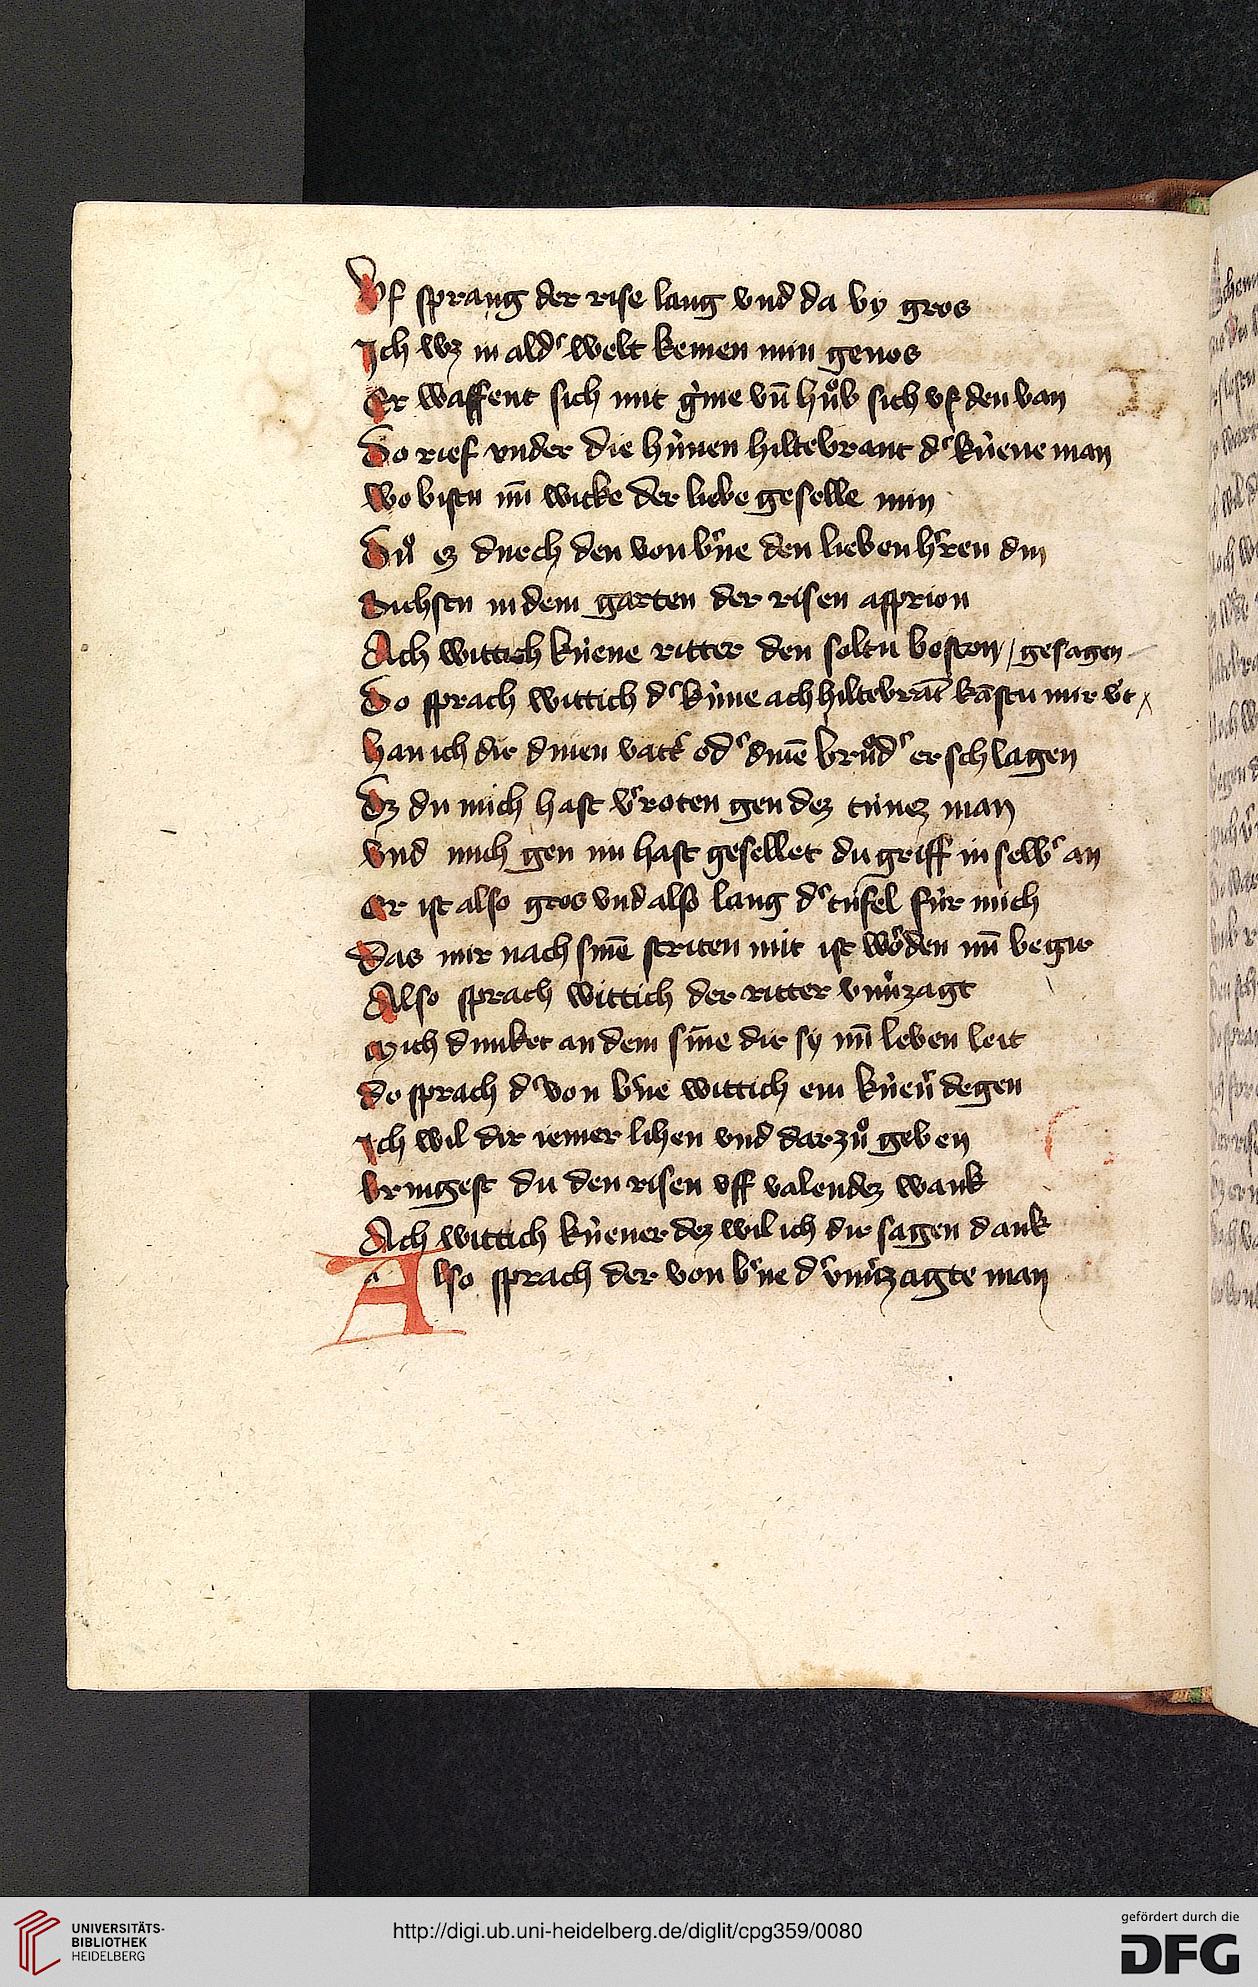 Vf sprang der rise lang vnd da by gros
Ich wz in aldˢ welt keinen min genos
Er waffent sich mit grͥme vn̄ hůb sich vf den ban
Do rief vnder die hu̍nen hiltebrant dˢ ku̍ene man
Wo bistu mī witke der liebe geselle min
Dů ez durch den von bˢne den lieben hˢren din
Sichstu in dem garten der risen asprion
Ach wittich ku̍ene ritter den soltu beston / gesagen
Do sprach wittich dˢ ku̍ne ach hiltebrāt kāstu mir vˢt
han ich dir dinen vattˢ odˢ dinē brůdˢ erschlagen
Dz du mich hast vˢroten gen dez tu̍nez man
Vnd mich gen im hast gesellet du griff in selbˢ an
Er ist also gros vnd also lang dˢ tu̍fel fu̍r mich
Das mir nach sinē striten nüt ist wordē mī begir
Also sprach wittich der ritter vnuˢzagt
Mich dunket an dem sinne dir sy mī leben leit
do sprach dˢ von bˢne wittich ein ku̍enˢ degen
Ich wil dir iemer lihen vnd darzů geben
bringest du den risen vff valendez wank
Ach wittich ku̍ener dez wil ich dir sagen dank
Also sprach der von bˢne dˢ vnuˢzagte man
UNIVERSITÄTS-
BIBLIOTHEK
HEIDELBERG
http://digi.ub.uni-heidelberg.de/diglit/cpg359/0080
gefördert durch die
DFG